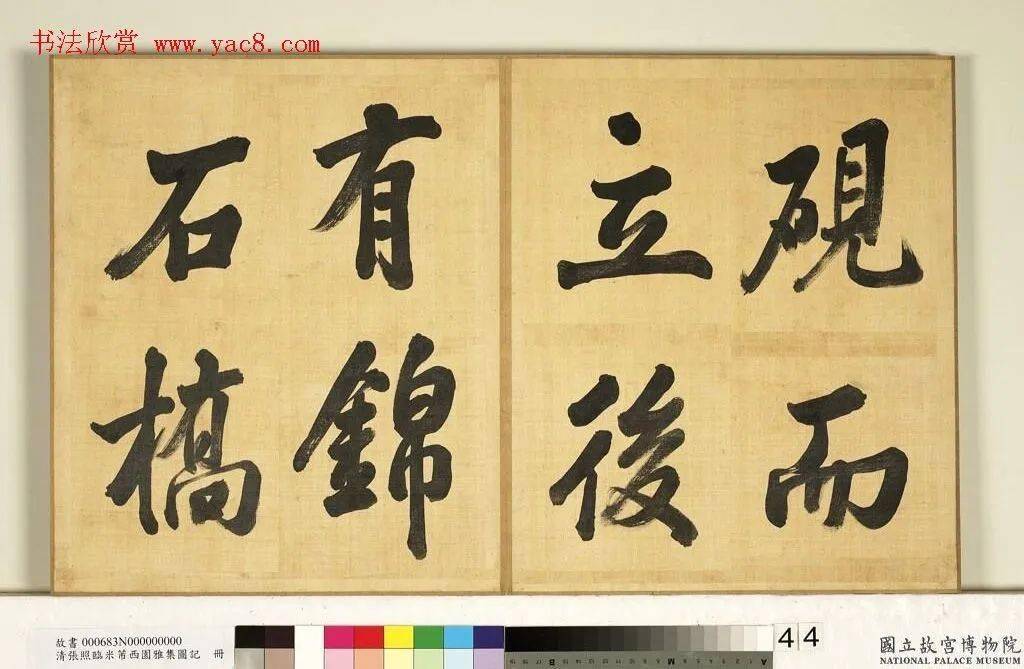 书法欣赏 www.yac8.com
硯而
立後
有錦
石橋
故書 000683N000000000
清張照臨米芾西園雅集圖記 冊
44
國立故宮博物院
NATIONAL PALACE MUSEUM